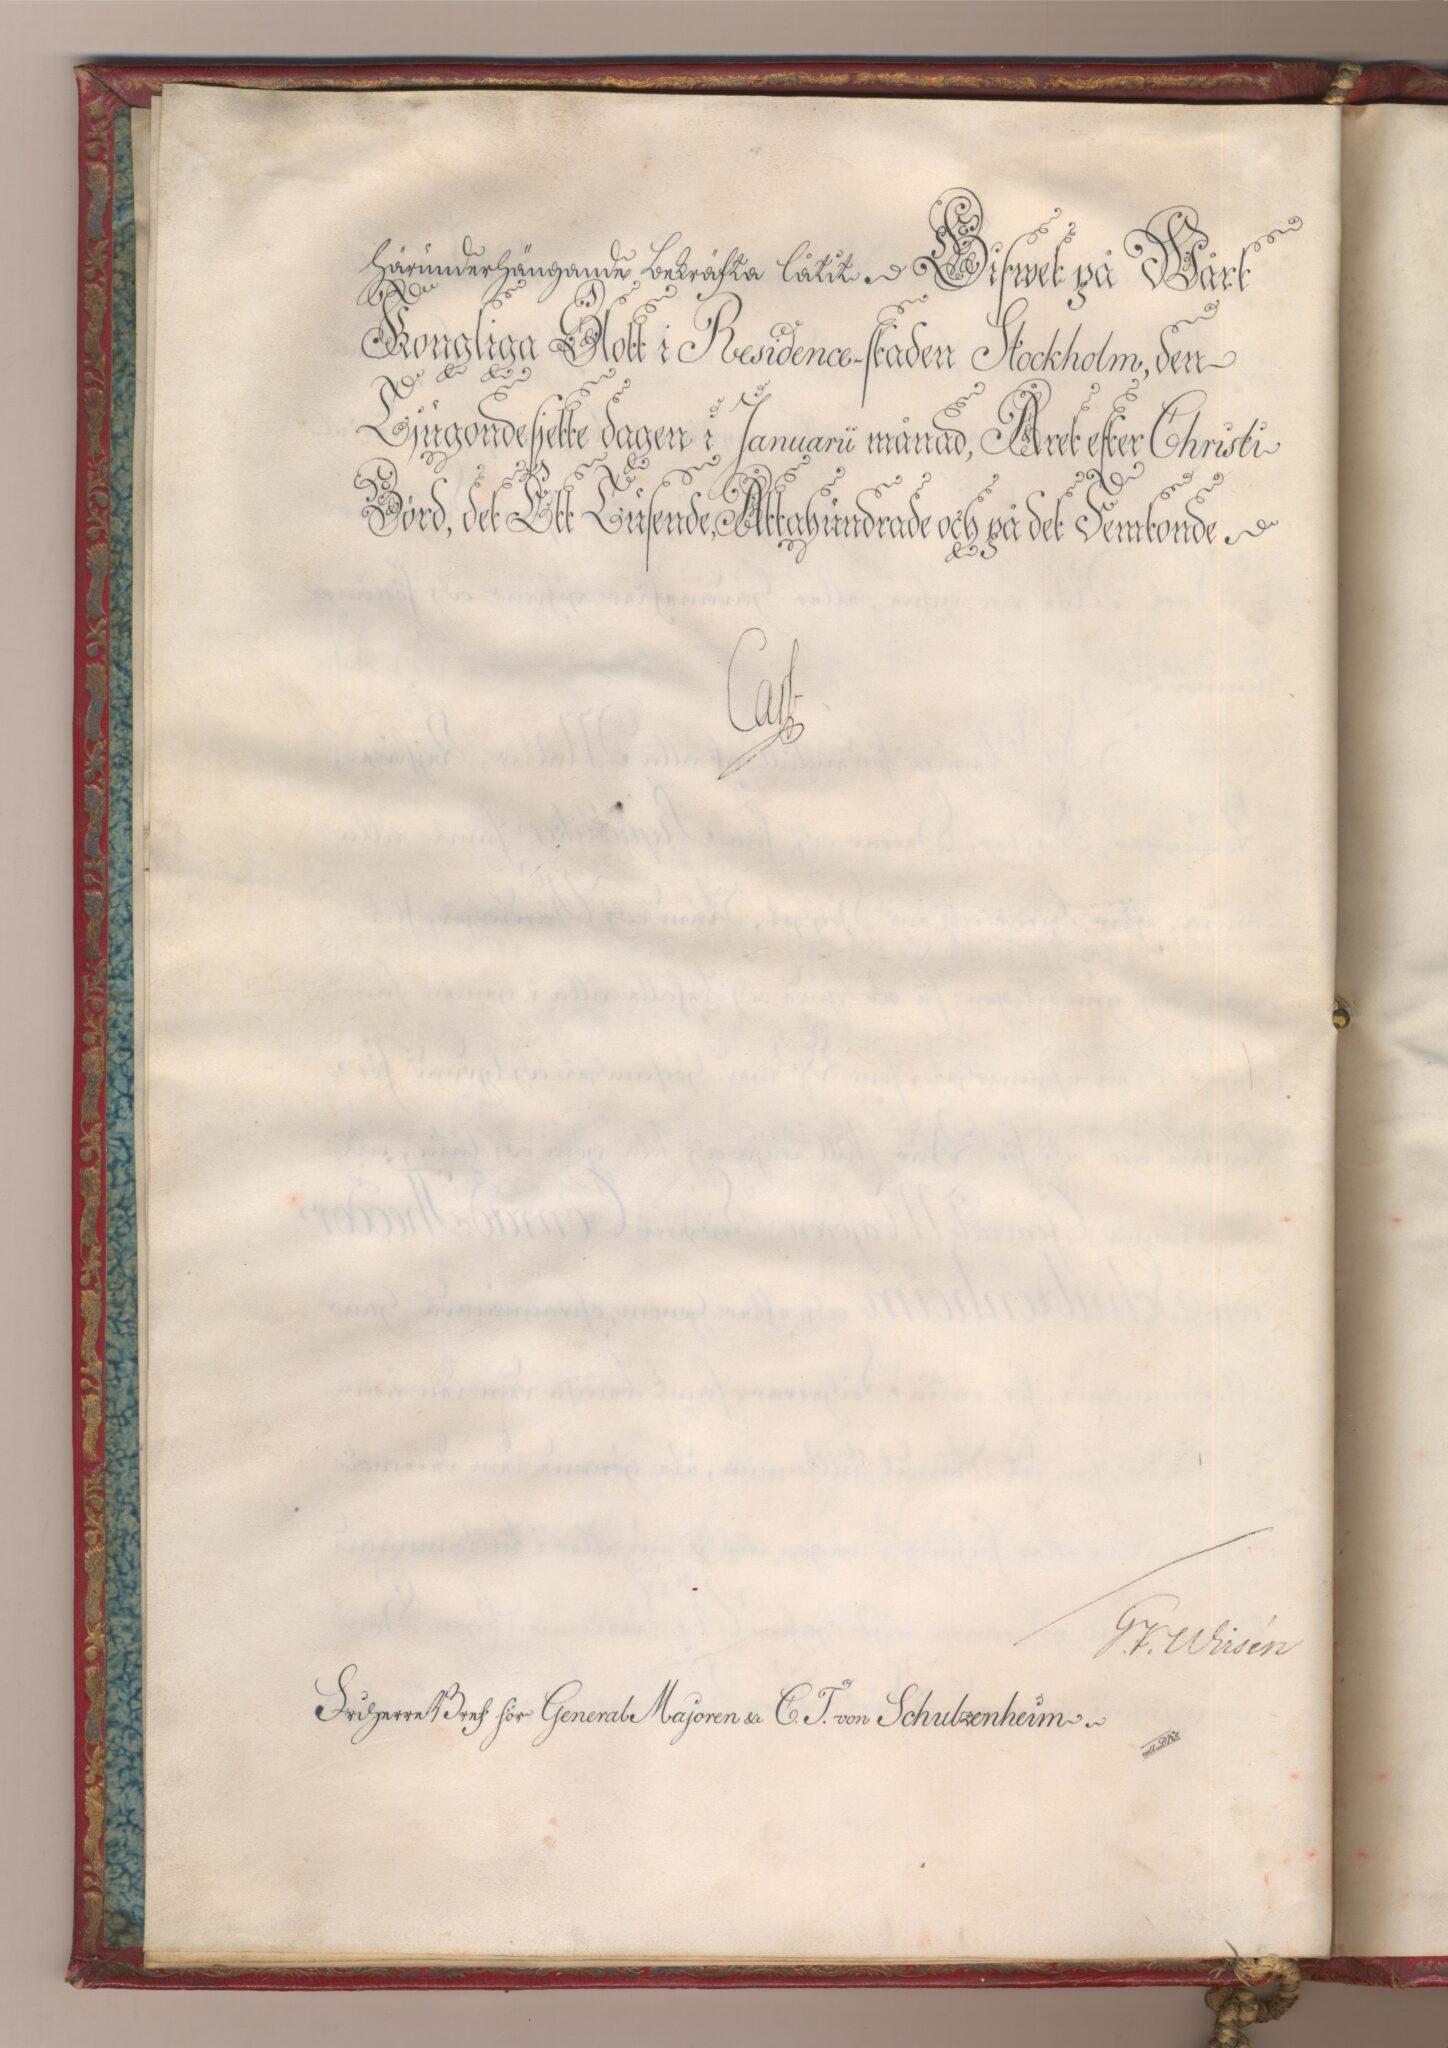 härunderhängande bekräfta låtit. Gifwet på Wårt
Kongliga Slott i Residence-staden Stockholm, den
Tjugondesjette dagen i Januarii månad, Året efter Christi
Börd, det Ett Tusende, Attahundrade och på det Femtonde.
Carl
G.F. Wirsén
Friherre Bref för General Majoren &a C. T. von Schulzenheim.